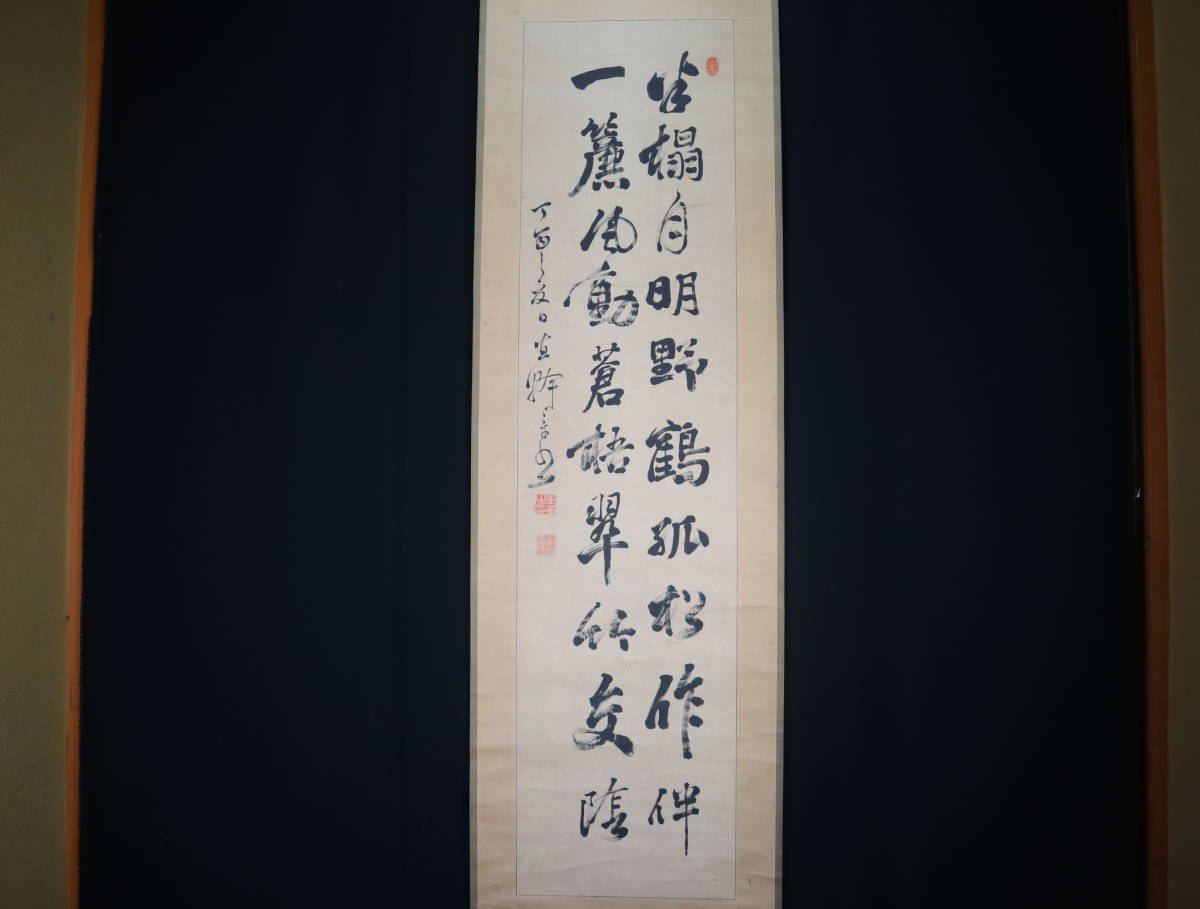 半榻月明野鶴孤松作伴
一簾風動蒼梧翠竹交陰
丁酉之夏日